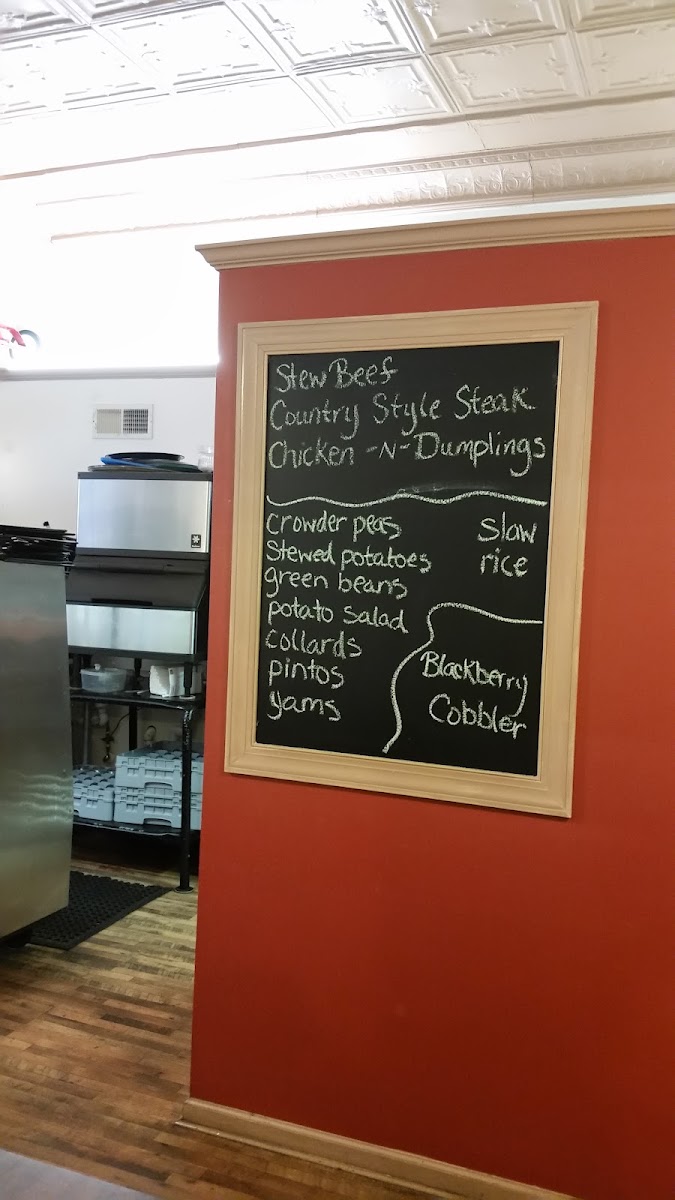 Stew Beef
Country Style Steak
Chicken -N- Dumplings
crowder peas
Stewed potatoes
green beans
potato salad
collards
pintos
yams
slaw
rice
Blackberry
Cobbler